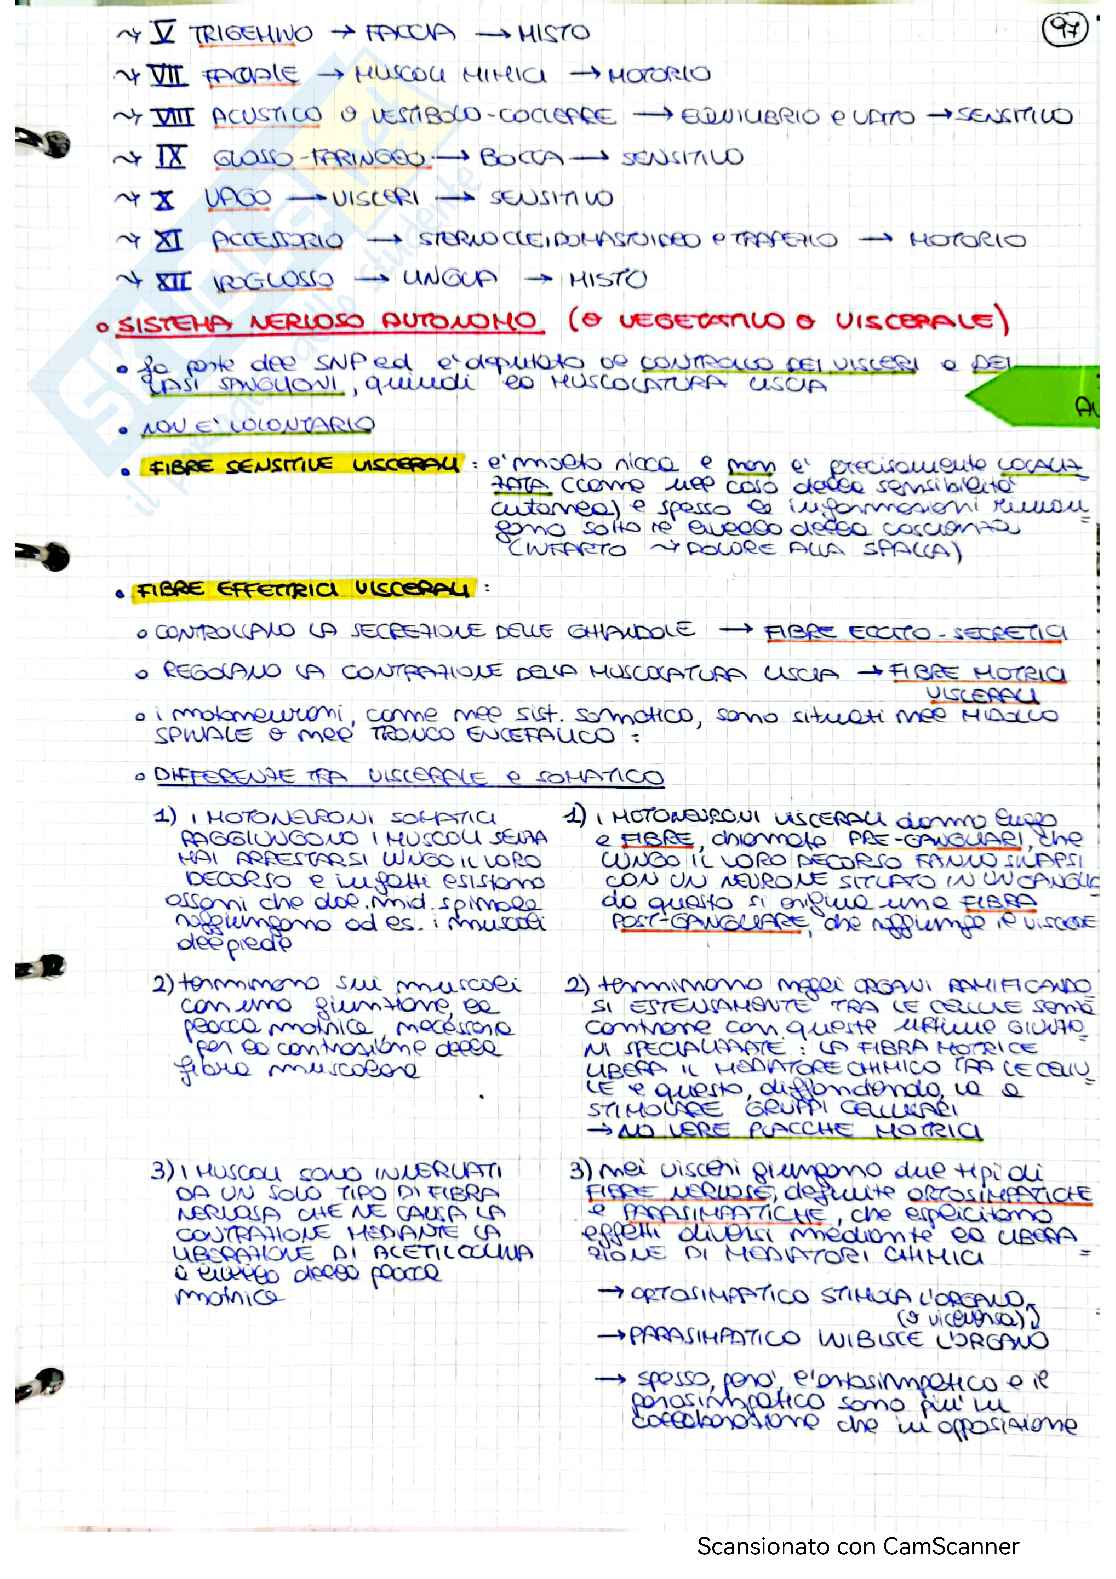 97
~ V TRIGEMINO → FACCIA → MISTO
~ VII FACCIALE → MUSCOLI MIMICI → MOTORIO
~ VIII ACUSTICO O VESTIBOLO-COCLEARE → EQUILIBRIO e UDITO → SENSITIVO
~ IX GLOSSO-FARINGEO → BOCCA → SENSITIVO
~ X VAGO → VISCERI → SENSITIVO
~ XI ACCESSORIO → STERNOCLEIDOMASTOIDEO e TRAPEZIO → MOTORIO
~ XII IPOGLOSSO → LINGUA → MISTO
• SISTEMA NERVOSO AUTONOMO (O VEGETATIVO O VISCERALE)
• fa parte del SNP ed è deputato al CONTROLLO DEI VISCERI e DEI
VASI SANGUIGNI, quindi la MUSCOLATURA LISCIA
AU
• NON È VOLONTARIO
• FIBRE SENSITIVE VISCERALI: è molto ricca e non è precisamente LOCALIZ
ZATA (come nel caso della sensibilità
cutanea) e spesso le informazioni riman=
gono sotto il livello della coscienza
(INFARTO ~ DOLORE ALLA SPALLA)
• FIBRE EFFETTRICI VISCERALI:
• CONTROLLANO LA SECREZIONE DELLE GHIANDOLE → FIBRE ECCITO-SECRETICI
• REGOLANO LA CONTRAZIONE DELLA MUSCOLATURA LISCIA → FIBRE MOTRICI
VISCERALI
• i motoneuroni, come nel sist. somatico, sono situati nel MIDOLLO
SPINALE O nel TRONCO ENCEFALICO:
• DIFFERENZE TRA VISCERALE e SOMATICO
1) I MOTONEURONI SOMATICI
RAGGIUNGONO I MUSCOLI SENZA
MAI ARRESTARSI LUNGO IL LORO
DECORSO e infatti esistono
assoni che dal mid. spinale
raggiungono ad es. i muscoli
del piede
1) I MOTONEURONI VISCERALI danno luogo
a FIBRE, chiamate PRE-GANGLIARI, che
LUNGO IL LORO DECORSO FANNO SINAPSI
CON UN NEURONE SITUATO IN UN GANGLIO
da questo si origina una FIBRA
POST-GANGLIARE, che raggiunge il VISCERE
2) terminano sui muscoli
con una giunzione, la
placca motrice, necessaria
per la contrazione della
fibra muscolare
2) terminano negli ORGANI RAMIFICANDO
SI ESTENSAMENTE TRA LE CELLULE senza
contrarre con queste ultime GIUNZIO
NI SPECIALIZZATE: LA FIBRA MOTRICE
LIBERA IL MEDIATORE CHIMICO TRA LE CELLU=
LE e questo, diffondendo, va a
STIMOLARE GRUPPI CELLULARI
→ NO VERE PLACCHE MOTRICI
3) I MUSCOLI SONO INNERVATI
DA UN SOLO TIPO DI FIBRA
NERVOSA CHE NE CAUSA LA
CONTRAZIONE MEDIANTE LA
LIBERAZIONE DI ACETILCOLINA
a livello della placca
motrice
3) nei visceri giungono due tipi di
FIBRE NERVOSE, definite ORTOSIMPATICHE
e PARASIMPATICHE, che esplicitano
effetti diversi mediante la LIBERA=
ZIONE DI MEDIATORI CHIMICI
→ ORTOSIMPATICO STIMOLA L'ORGANO
(o viceversa)
→ PARASIMPATICO INIBISCE L'ORGANO
→ spesso, però, l'ortosimpatico e il
parasimpatico sono più in
collaborazione che in opposizione
Scansionato con CamScanner